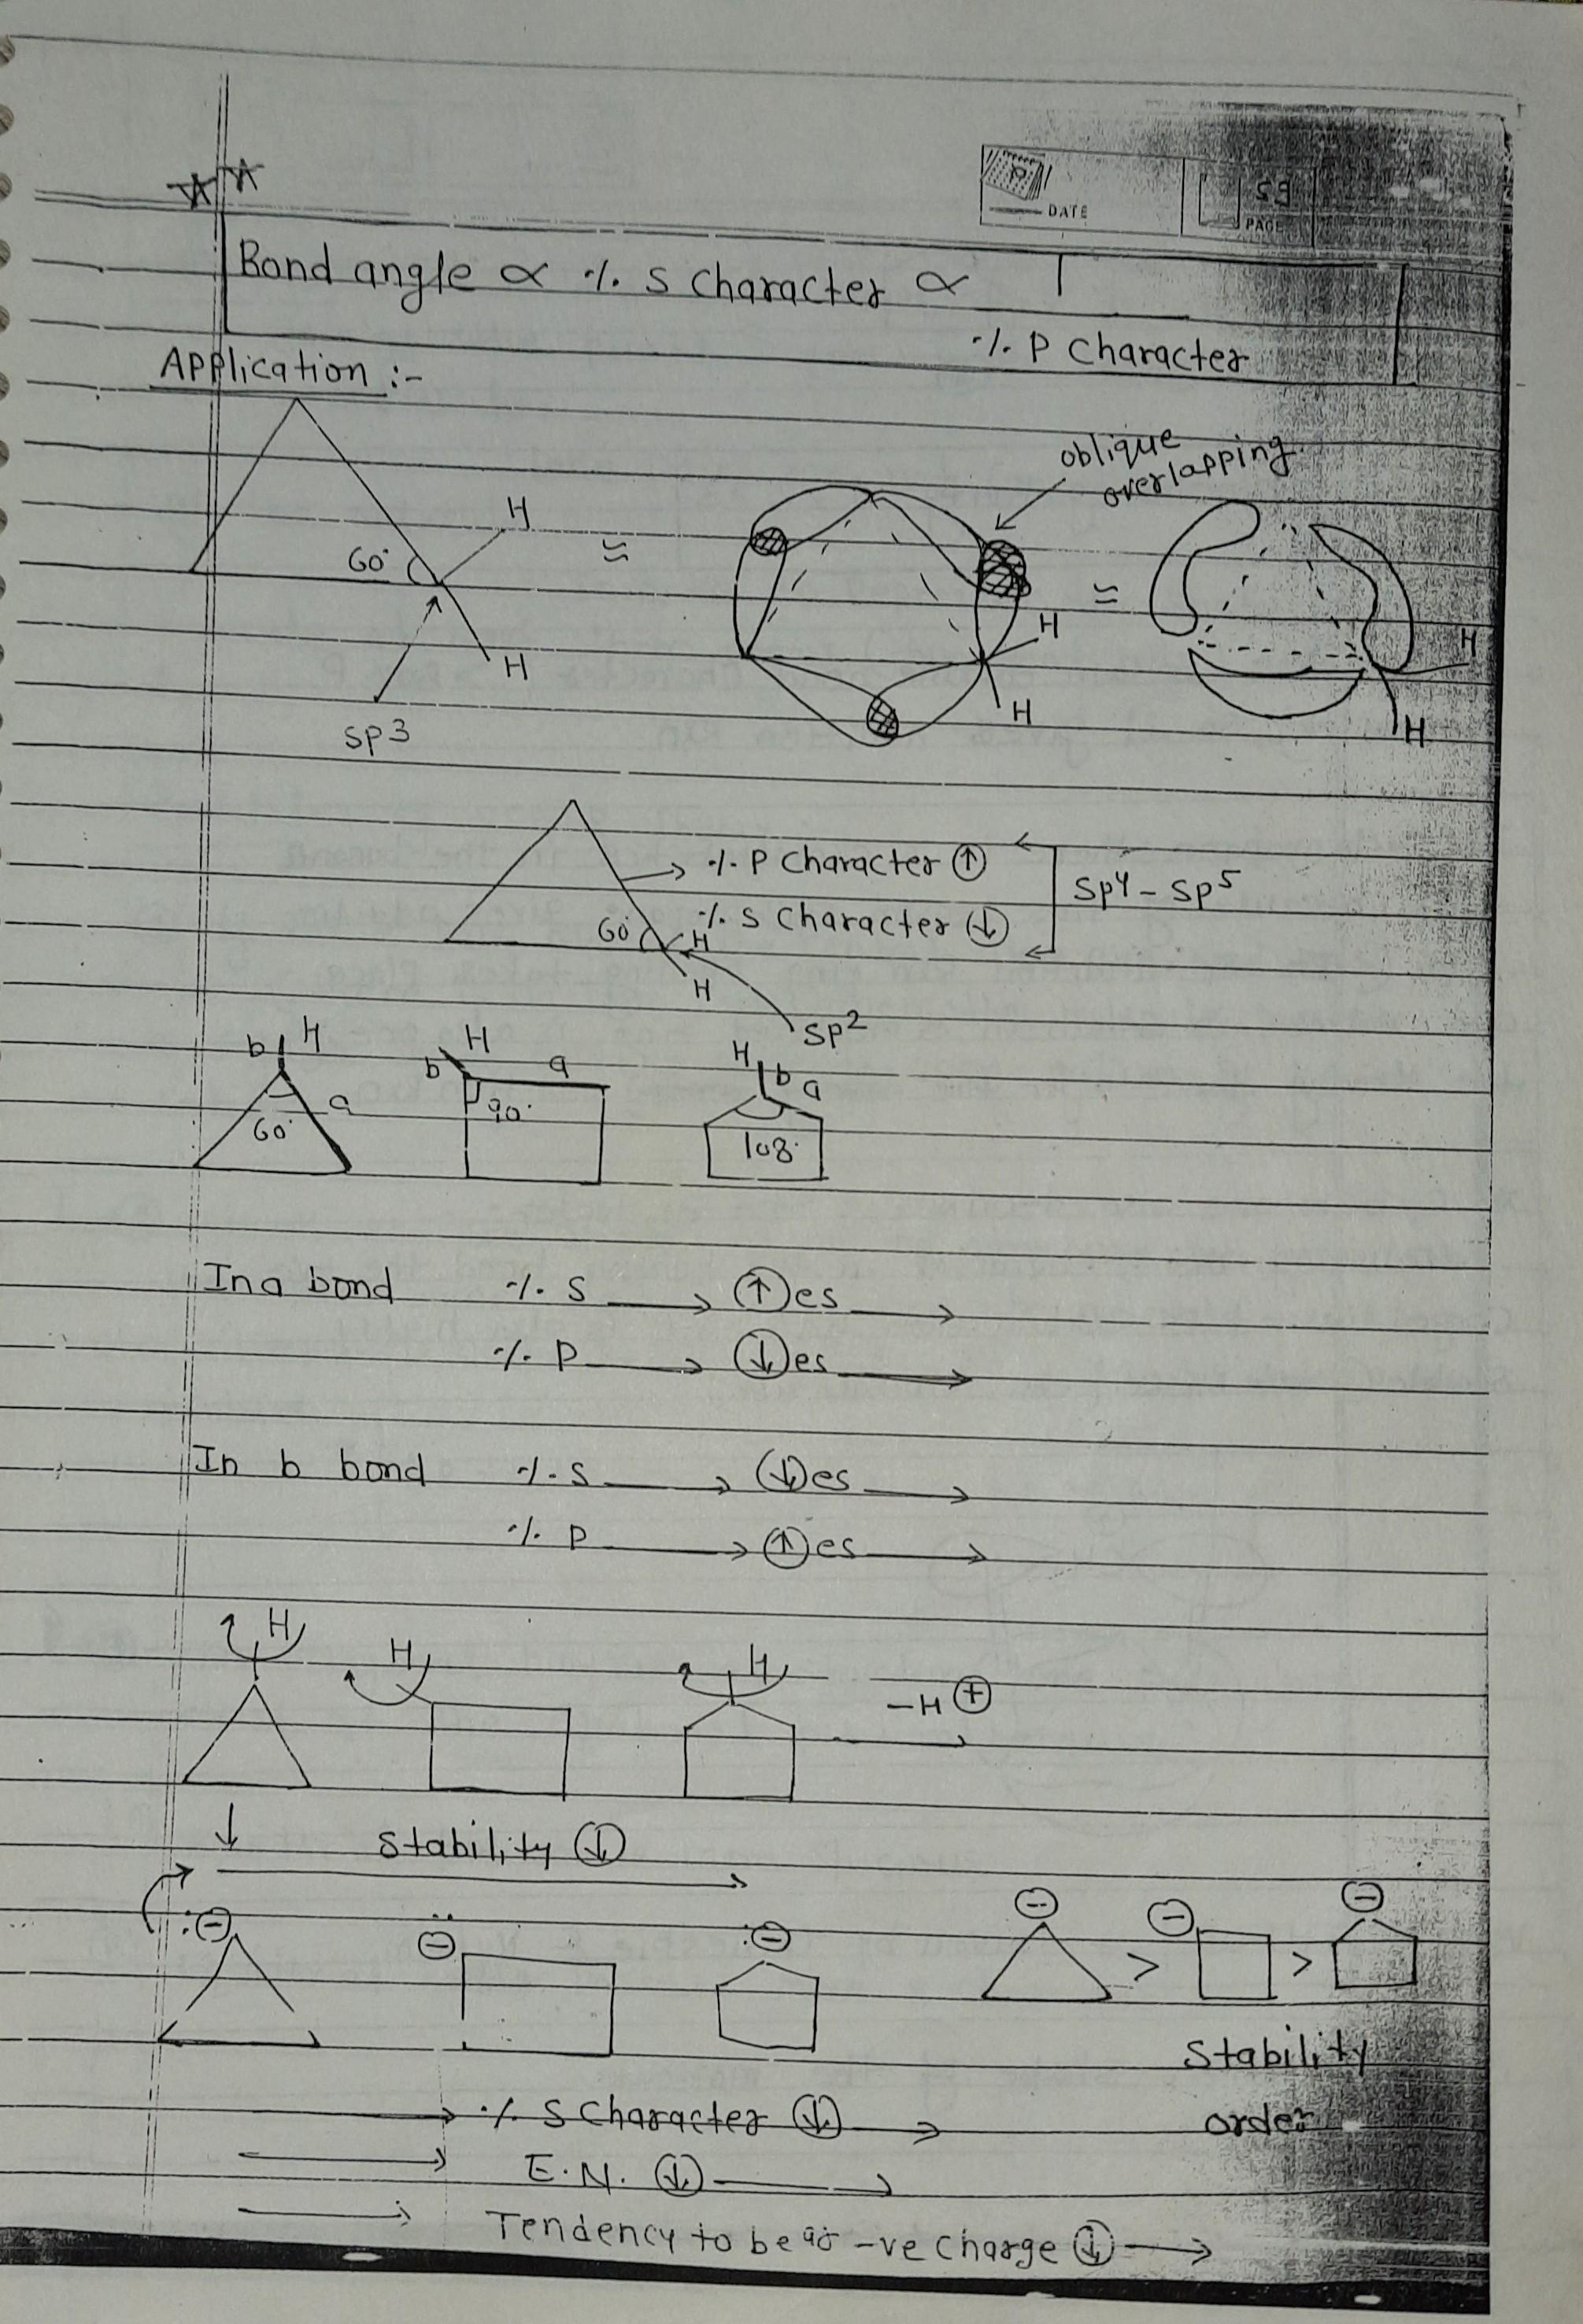 DATE
59
PAGE
Bond angle ∝ % S Character ∝ 1
% P Character
Application :-
oblique
overlapping
H
60°
≈
≈
H
H
H
H
H
SP3
→ % P Character ↑
SP⁴ - SP⁵
60° % S Character ↓
H
H
SP²
b H
b H a
H b a
60°
90°
108°
In a bond % S → ↑es →
% P → ↓es →
In b bond % S → ↓es →
% P → ↑es →
H
H
H
-H ⊕
↓ Stability ↓
:⊖
⊖
:⊖
⊖ > ⊖ > ⊖
Stability
→ % S Character ↓ →
order
→ E.N. ↓ →
→ Tendency to bear -ve charge ↓ →